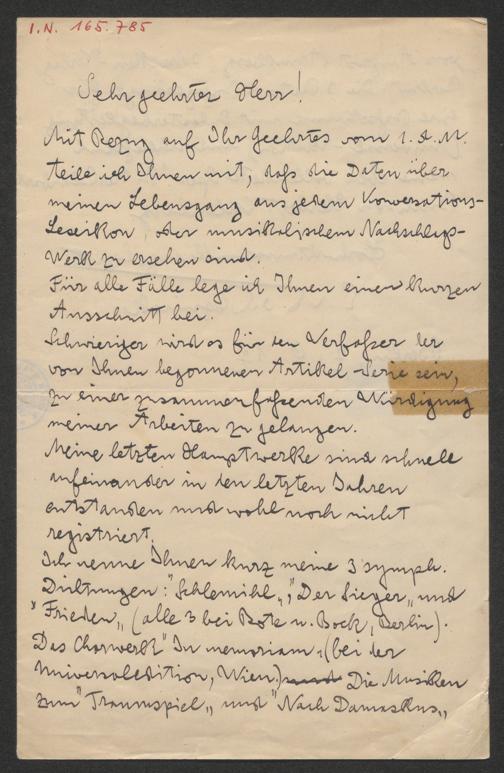 I.N. 165.785
Sehr geehrter Herr!
Mit Bezug auf Ihr Geehrtes vom 1. d. M.
teile ich Ihnen mit, daß die Daten über
meinen Lebensgang aus jedem Konversations-
Lexikon oder musikalischem Nachschlags-
Werk zu ersehen sind.
Für alle Fälle lege ich Ihnen einen kurzen
Ausschnitt bei.
Schwieriger wird es für den Verfaßer der
von Ihnen begonnenen Artikel-Serie sein,
zu einer zusammenfaßenden Würdigung
meiner Arbeiten zu gelangen.
Meine letzten Hauptwerke sind schnell
aufeinander in den letzten Jahren
entstanden und wohl noch nicht
registriert.
Ich nenne Ihnen kurz meine 3 symph.
Dichtungen: "Schlemihl", "Der Sieger" und
"Frieden" (alle 3 bei Bote u. Bock, Berlin).
Das Chorwerk "In memoriam" (bei der
Universaledition, Wien.) und Die Musiken
zum "Traumspiel" und "Nach Damaskus"